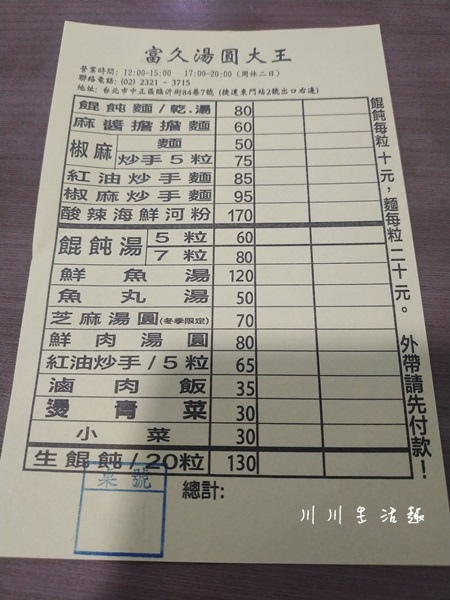 富久湯圓大王
營業時間: 12:00-15:00 17:00-20:00 (周休二日)
聯絡電話: (02) 2321 - 3715
地址: 台北市中正區臨沂街84巷7號 (捷運東門站2號出口右邊)
餛飩麵/乾.湯 80
麻醬擔擔麵 60
椒麻 麵 50
炒手5粒 75
紅油炒手麵 85
椒麻炒手麵 95
酸辣海鮮河粉 170
餛飩湯 5 粒 60
7 粒 80
鮮魚湯 120
魚丸湯 50
芝麻湯圓(冬季限定) 70
鮮肉湯圓 80
紅油炒手/5粒 65
滷肉飯 35
燙青菜 30
小菜 30
生餛飩/20粒 130
桌號
總計:
餛飩每粒十元，麵每粒二十元。 外帶請先付款！
川川生活趣